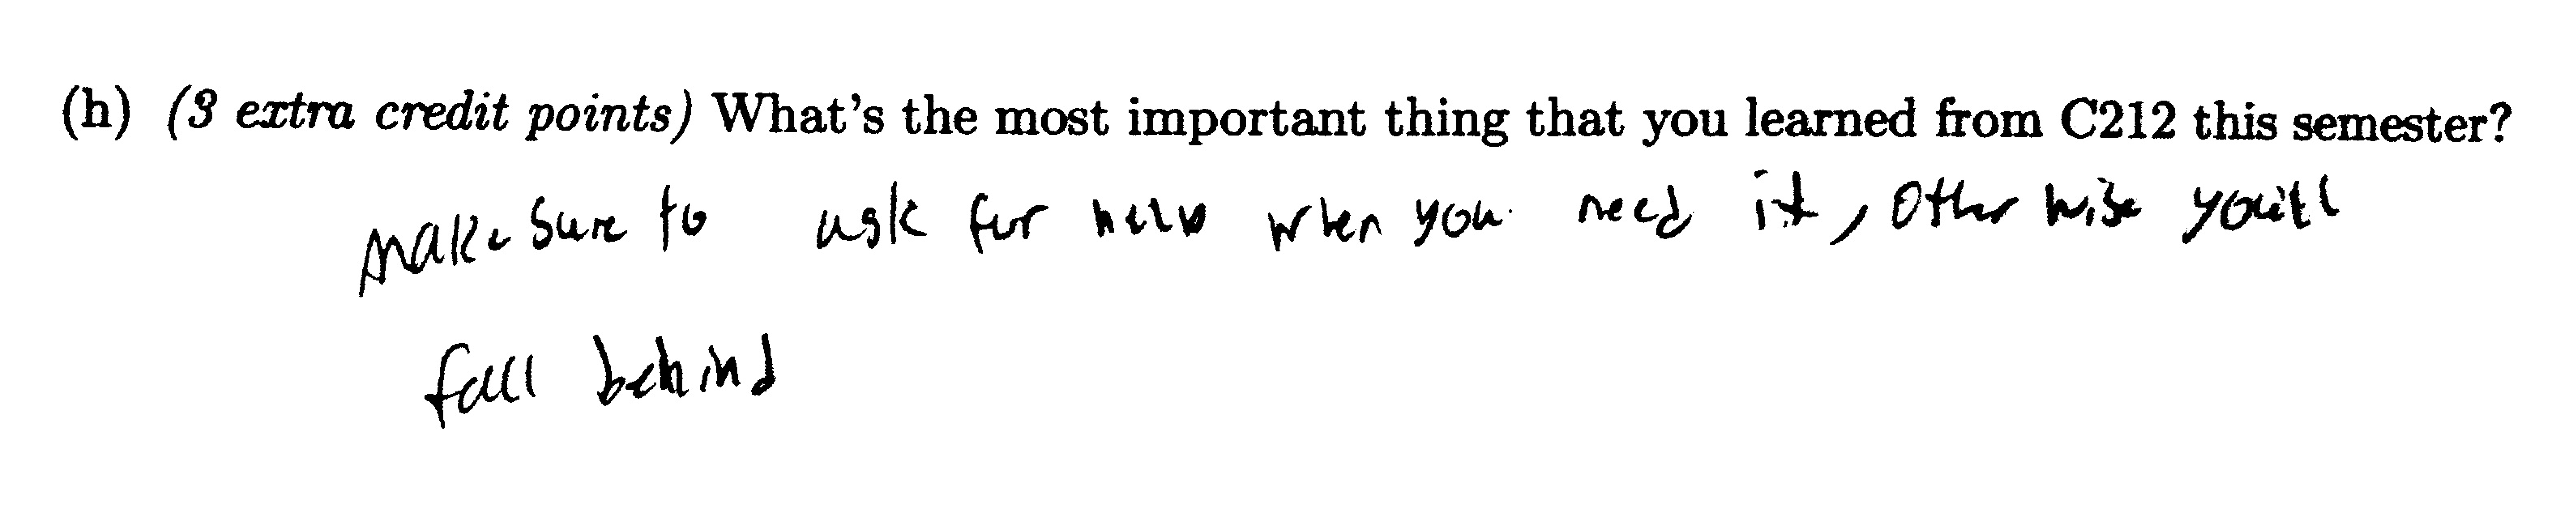 (h) (3 extra credit points) What's the most important thing that you learned from C212 this semester?
Make sure to ask for help when you need it, Otherwise you'll
fall behind